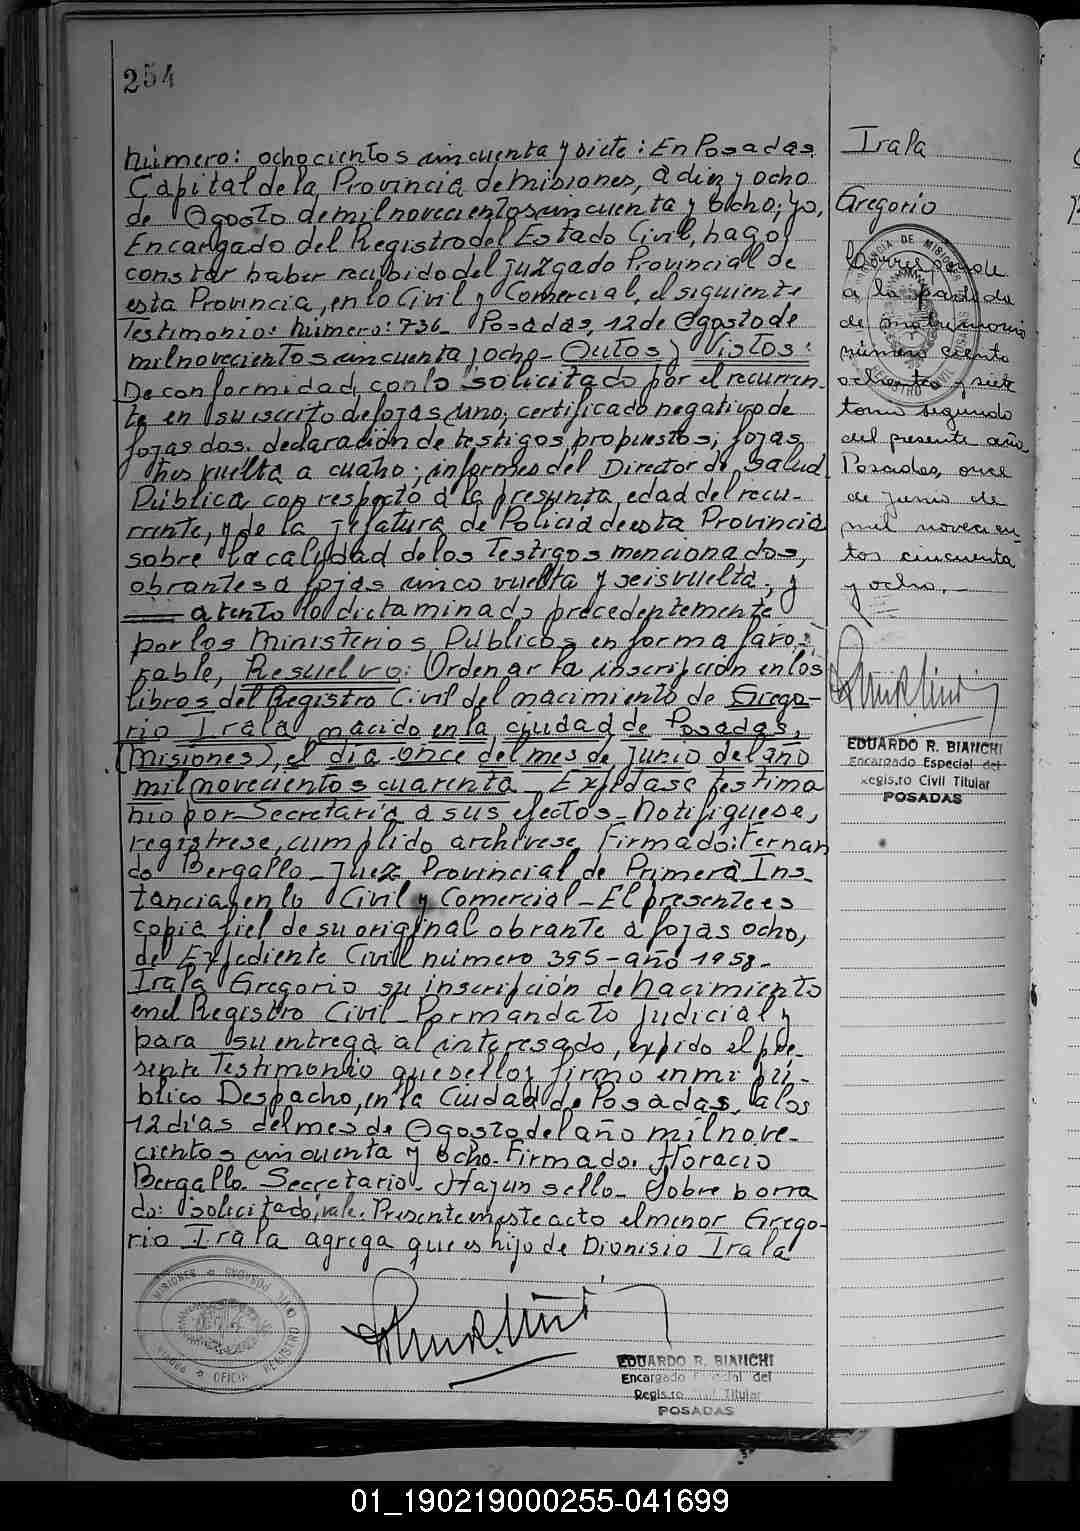 254
número: ochocientos cincuenta y siete: En Posadas
Capital de la Provincia de Misiones, a diez y ocho
de Agosto de mil novecientos cincuenta y ocho; yo,
Encargado del Registro del Estado Civil, hago
constar haber recibido del juzgado Provincial de
esta Provincia, en lo Civil y Comercial, el siguiente
Testimonio: número: 736_ Posadas, 12 de Agosto de
mil novecientos cincuenta y ocho_ Autos y Vistos:
De conformidad con lo solicitado por el recurren-
te en su escrito de fojas uno; certificado negativo de
fojas dos, declaración de testigos propuestos; fojas
tres vuelta a cuatro; informes del Director de Salud
Pública con respecto a la presunta edad del recu-
rrente, y de la jefatura de Policia de esta Provincia
sobre la calidad de los Testigos mencionados,
obrantes a fojas cinco vuelta y seis vuelta; y
atento lo dictaminado precedentemente
por los Ministerios Públicos en forma favo-
rable, Resuelvo: Ordenar la inscripción en los
libros del Registro Civil del nacimiento de Grego-
rio Irala, nacido en la ciudad de Posadas,
(Misiones), el día once del mes de junio del año
mil novecientos cuarenta_ Expidase testimo
nio por Secretaría a sus efectos_ Notifiquese,
registrese, cumplido archivese. Firmado: Fernan
do Bergallo_ Juez Provincial de Primera Ins-
tancia en lo Civil y Comercial_ El presente es
copia fiel de su original obrante a fojas ocho,
de Expediente Civil número 395-año 1958-
Irala Gregorio su inscripción de nacimiento
en el Registro Civil_ Por mandato judicial y
para su entrega al interesado, expido el pre-
sente Testimonio que sello y firmo en mi pú-
blico Despacho, en la Ciudad de Posadas, a los
12 días del mes de Agosto del año mil nove-
cientos cincuenta y ocho. Firmado. Horacio
Bergallo. Secretario_ Hay un sello_ Sobre borra
do: solicitado; vale. Presente en este acto el menor Grego-
rio Irala agrega que es hijo de Dionisio Irala
EDUARDO R. BIANCHI
Encargado Especial del
Registro Civil Titular
POSADAS
Irala
Gregorio
Corresponde
a la partida
de matrimonio
número ciento
ochenta y siete
tomo segundo
del presente año
Posadas, once
de junio de
mil novecien
tos cincuenta
y ocho._
EDUARDO R. BIANCHI
Encargado Especial del
Registro Civil Titular
POSADAS
01_190219000255-041699